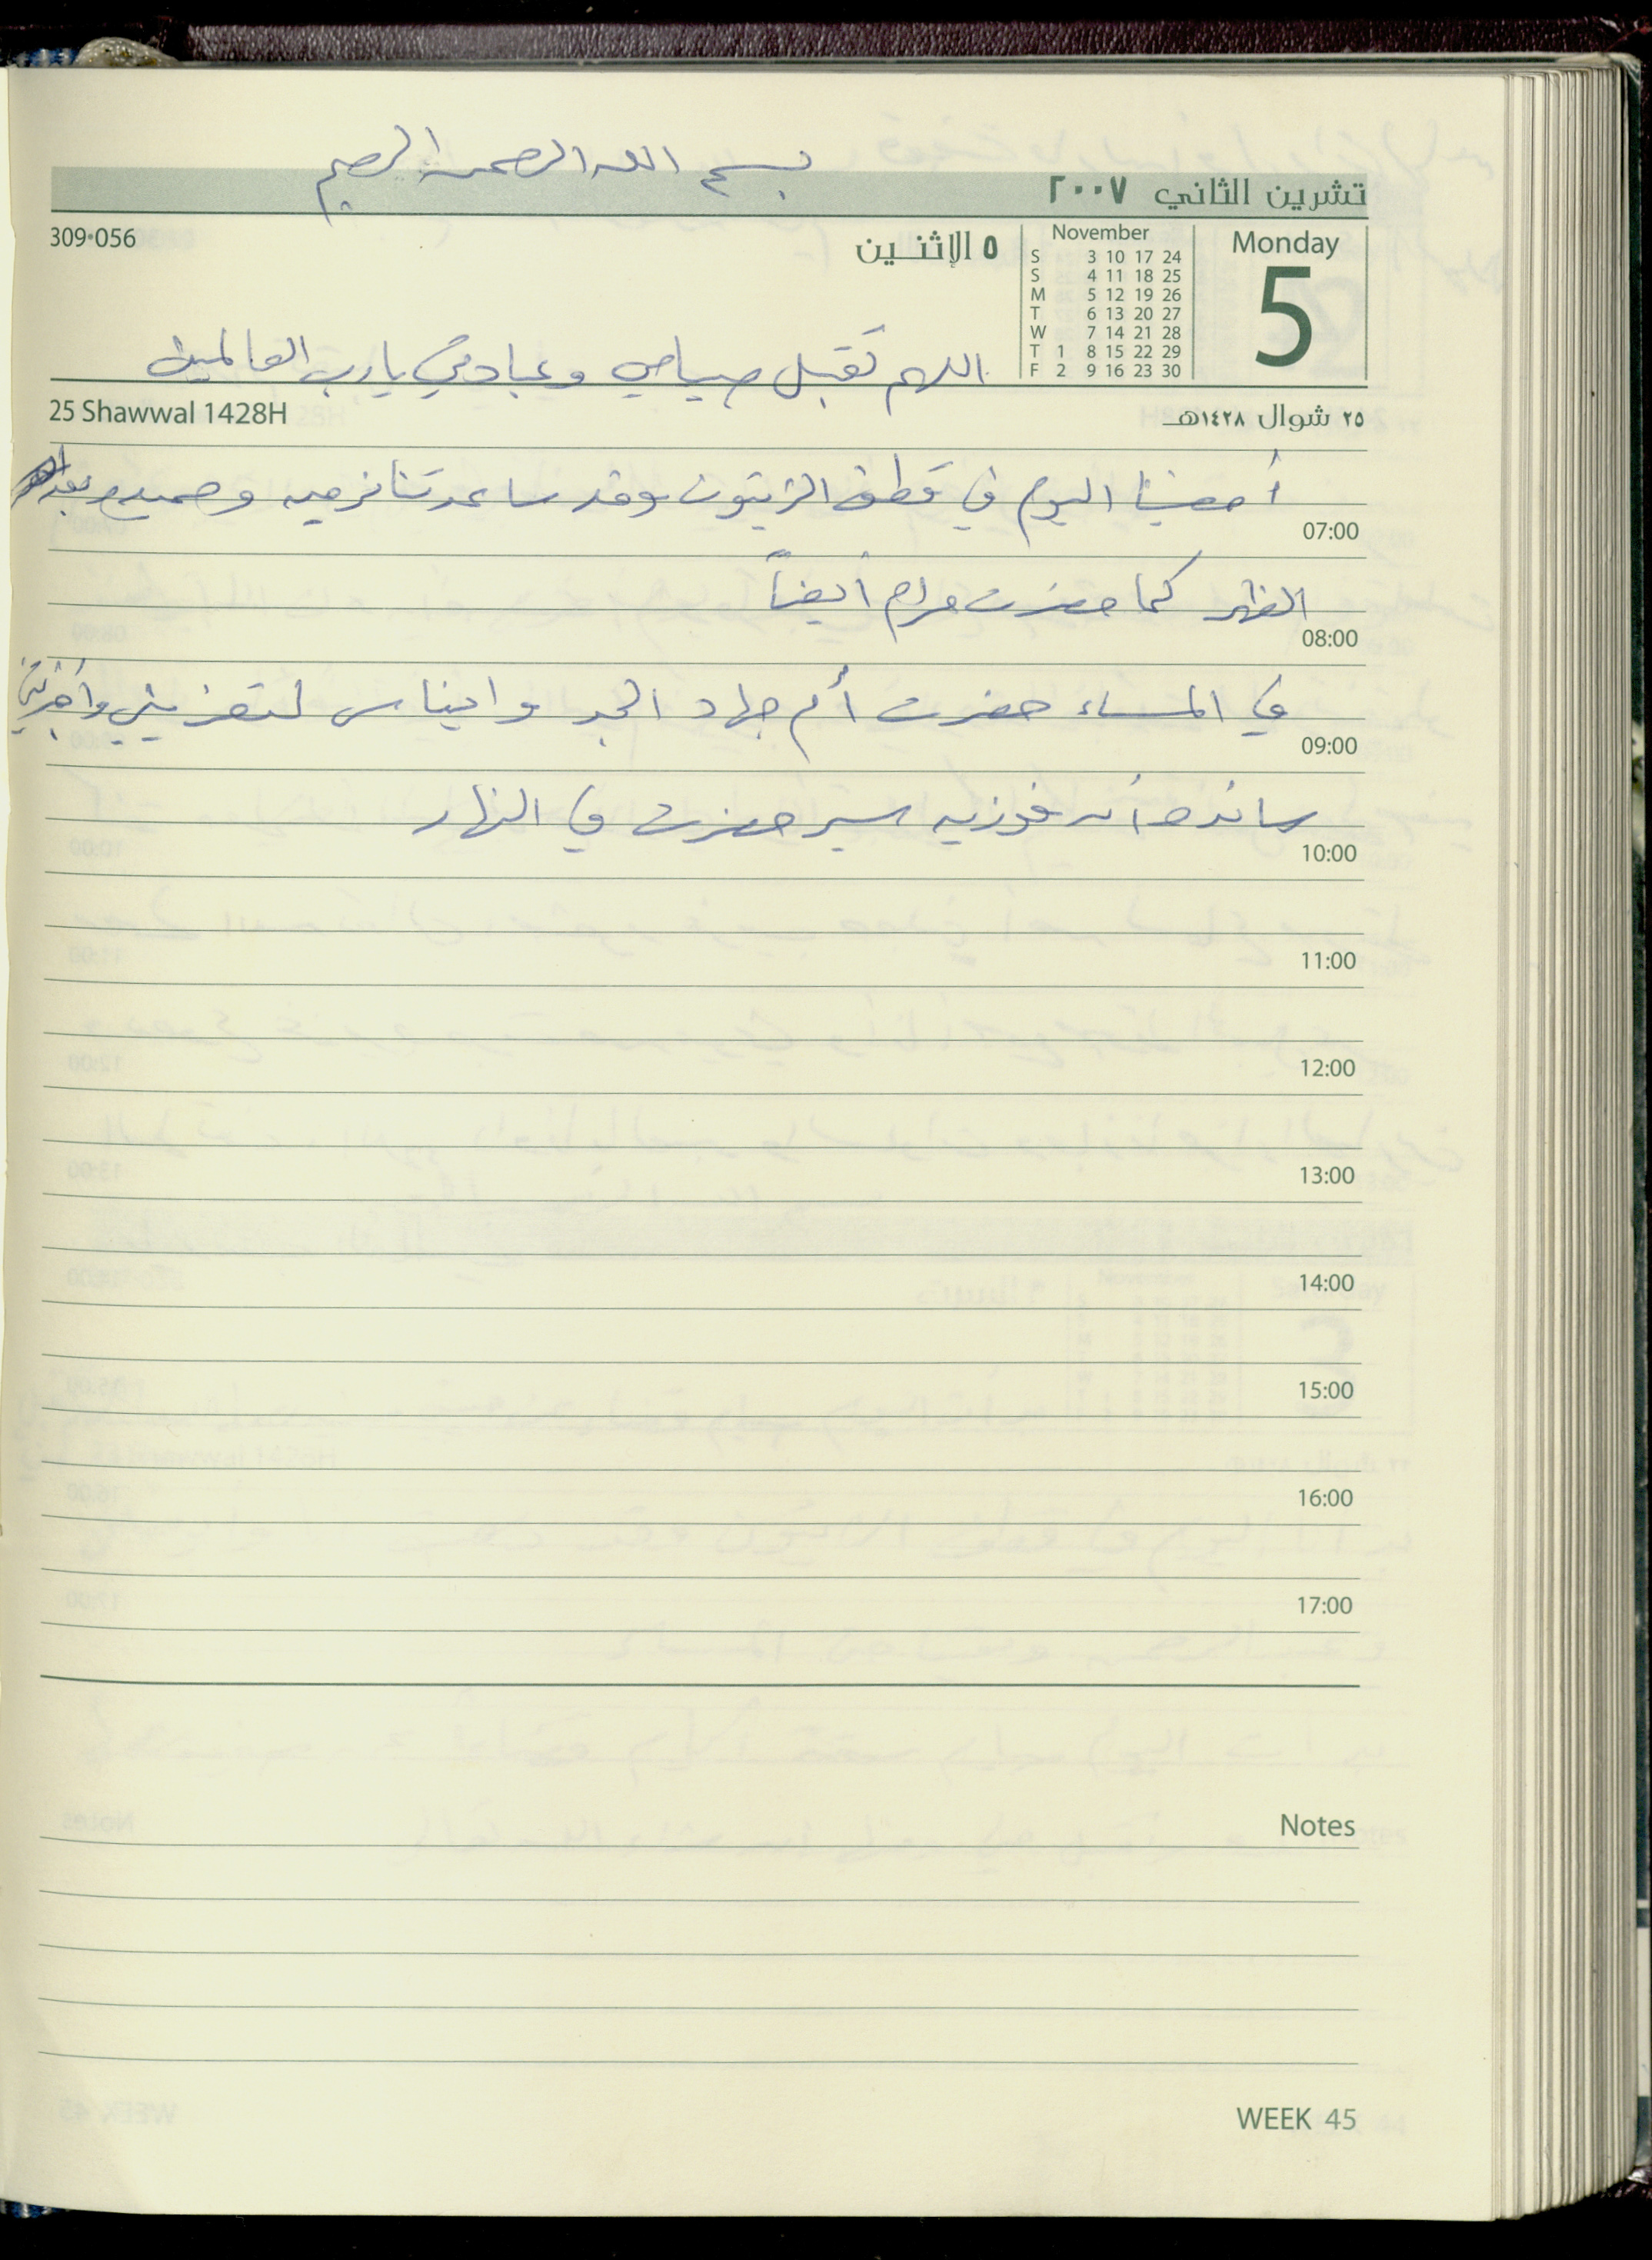 بسم الله الرحمن الرحيم
تشرين الثاني ٢٠٠٧
309-056
٥ الإثنين
November
Monday
5
S 3 10 17 24
S 4 11 18 25
M 5 12 19 26
T 6 13 20 27
W 7 14 21 28
T 1 8 15 22 29
F 2 9 16 23 30
اللهم تقبل صيامي وعبادتي يا رب العالمين
25 Shawwal 1428H
٢٥ شوال ١٤٢٨هـ
أمضينا اليوم في قطف الزيتون وقد ساعدتنا نرمين وحميد بعد
07:00
الظهر كما حضرت مرام أيضاً
08:00
في المساء حضرت أم جهاد الجد وايناس لتعزيتي وأخبرتني
09:00
ساندة أن فوزيه حضرت في النهار
10:00
11:00
12:00
13:00
14:00
15:00
16:00
17:00
Notes
WEEK 45